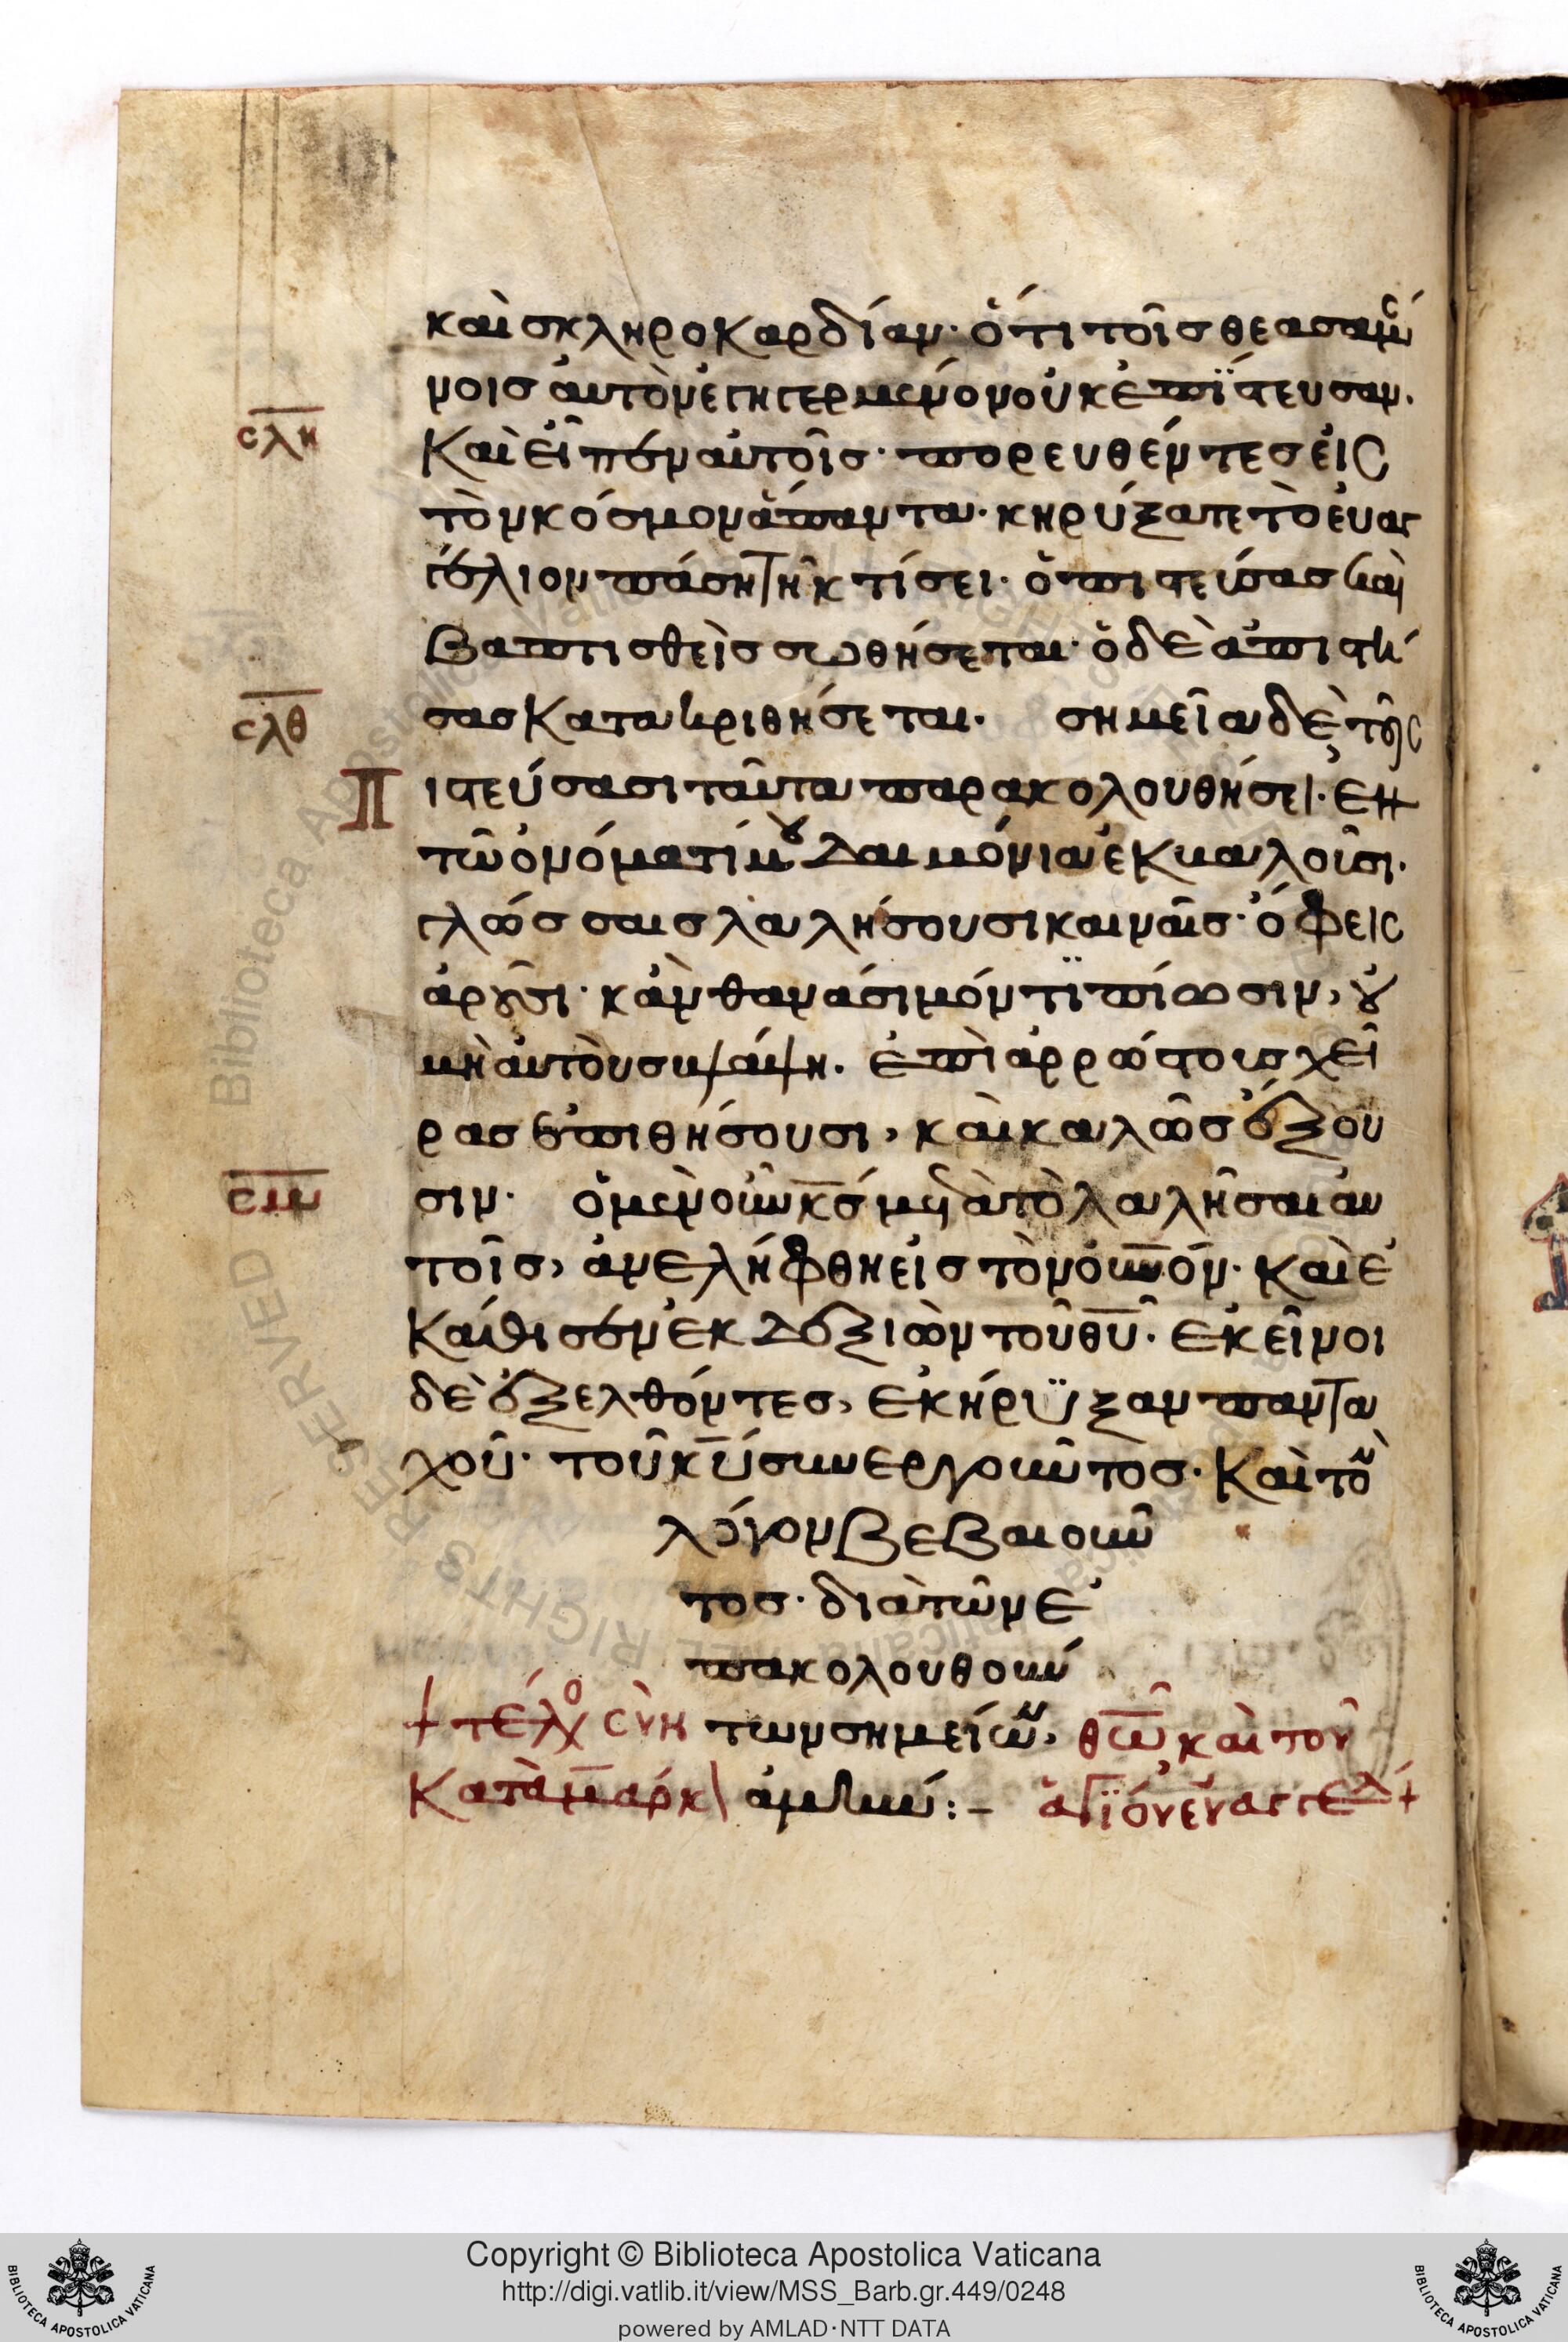 καὶ σκληροκαρδίαν· ὅτι τοῖς θεασαμέ
νοις αὐτὸν ἐγηγερμένον οὐκ ἐπΐστευσαν.
σλη
Καὶ εἶπεν αὐτοῖς· πορευθέντες εἰς
τὸν κόσμον ἅπαντα· κηρύξατε τὸ εὐαγ
γέλιον πάση τῆ κτίσει· ὁ πιστεύσας καὶ
βαπτισθεὶς σωθήσεται· ὁ δὲ ἀπιστή
σλθ
σας κατακριθήσεται. σημεῖα δὲ τοῖς
Π ιστεύσασι ταῦτα παρακολουθήσει· ἐν
τῶ ὀνόματί μου δαιμόνια ἐκβαλοῦσι.
γλώσσαις λαλήσουσι καιναῖς· ὄφεις
ἀροῦσι· κἂν θανάσιμόν τϊ πίωσιν, οὐ
μὴ αὐτοὺς βλάψη. ἐπὶ ἀρρώστους χεῖ
ρας ἐπιθήσουσι, καὶ καλῶς ἕξου
σμ
σιν. ὁ μὲν οὖν κς μετὰ τὸ λαλῆσαι αὐ
τοῖς, ἀνελήφθη εἰς τὸν οὐνόν. Καὶ ἐ
κάθισεν ἐκ δεξιῶν τοῦ θυ. ἐκεῖνοι
δὲ ἐξελθόντες, ἐκήρϋξαν πανта
χοῦ. τοῦ κυ συνεργοῦντος. Καὶ τὸν
λόγον βεβαιοῦν
τος. διὰ τῶν ἐ
πακολουθούν
+ τέλος σὺν των σημείων, θῶ καὶ τοῦ
Κατὰ μάρκ ἀμήν :– ἁγΐου εὐαγγελ +
Copyright © Biblioteca Apostolica Vaticana
http://digi.vatlib.it/view/MSS_Barb.gr.449/0248
powered by AMLAD·NTT DATA
BIBLIOTECA APOSTOLICA VATICANA
BIBLIOTECA APOSTOLICA VATICANA